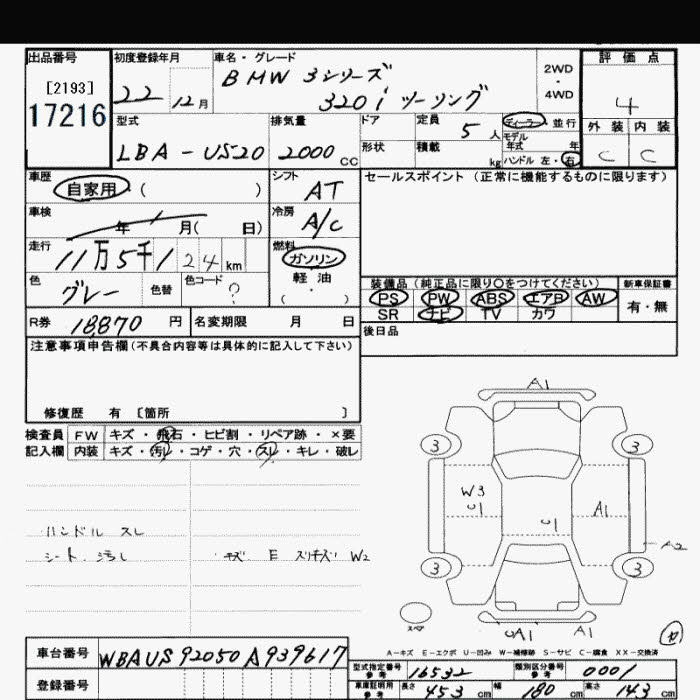 出品番号 初度登録年月 車名・グレード 評価点
[2193] 17216
22 12月
BMW 3シリーズ
320i ツーリング
2WD・4WD
4
外装 内装
C C
型式 排気量 ドア 定員 ディーラー 並行
LBA-US20 2000cc 5人
形状 積載 kg
モデル年式 年
ハンドル 左・右
車歴 シフト セールスポイント(正常に機能するものに限ります)
自家用 ( ) AT
車検 年 月( 日) 冷房 A/C
走行 11万5千124km 燃料 ガソリン
軽油
( ・ )
色 グレー 色替 色コード ?
装備品(純正品に限り○をつけてください) 新車保証書
PS PW ABS エアB AW 有・無
SR ナビ TV カワ
R券 18,870円 名変期限 月 日 後日品
注意事項申告欄(不具合内容等は具体的に記入して下さい)
修復歴 有 [箇所 ]
検査員 FW キズ・飛石・ヒビ割・リペア跡・×要
記入欄 内装 キズ・汚レ・コゲ・穴・スレ・キレ・破レ
ハンドル スレ
シート、汚レ
E スリキズ W2
A1
3 3
W3
U1
U1
A1
A2
3 3
スペア
UA1 A1
A-キズ E-エクボ U-凹み W-補修跡 S-サビ C-腐食 XX-交換済
車台番号 WBAUS92050A939617
型式指定番号 参考 16532 類別区分番号 参考 0001
登録番号
車庫証明用 参考 長さ 453cm 幅 180cm 高さ 143cm